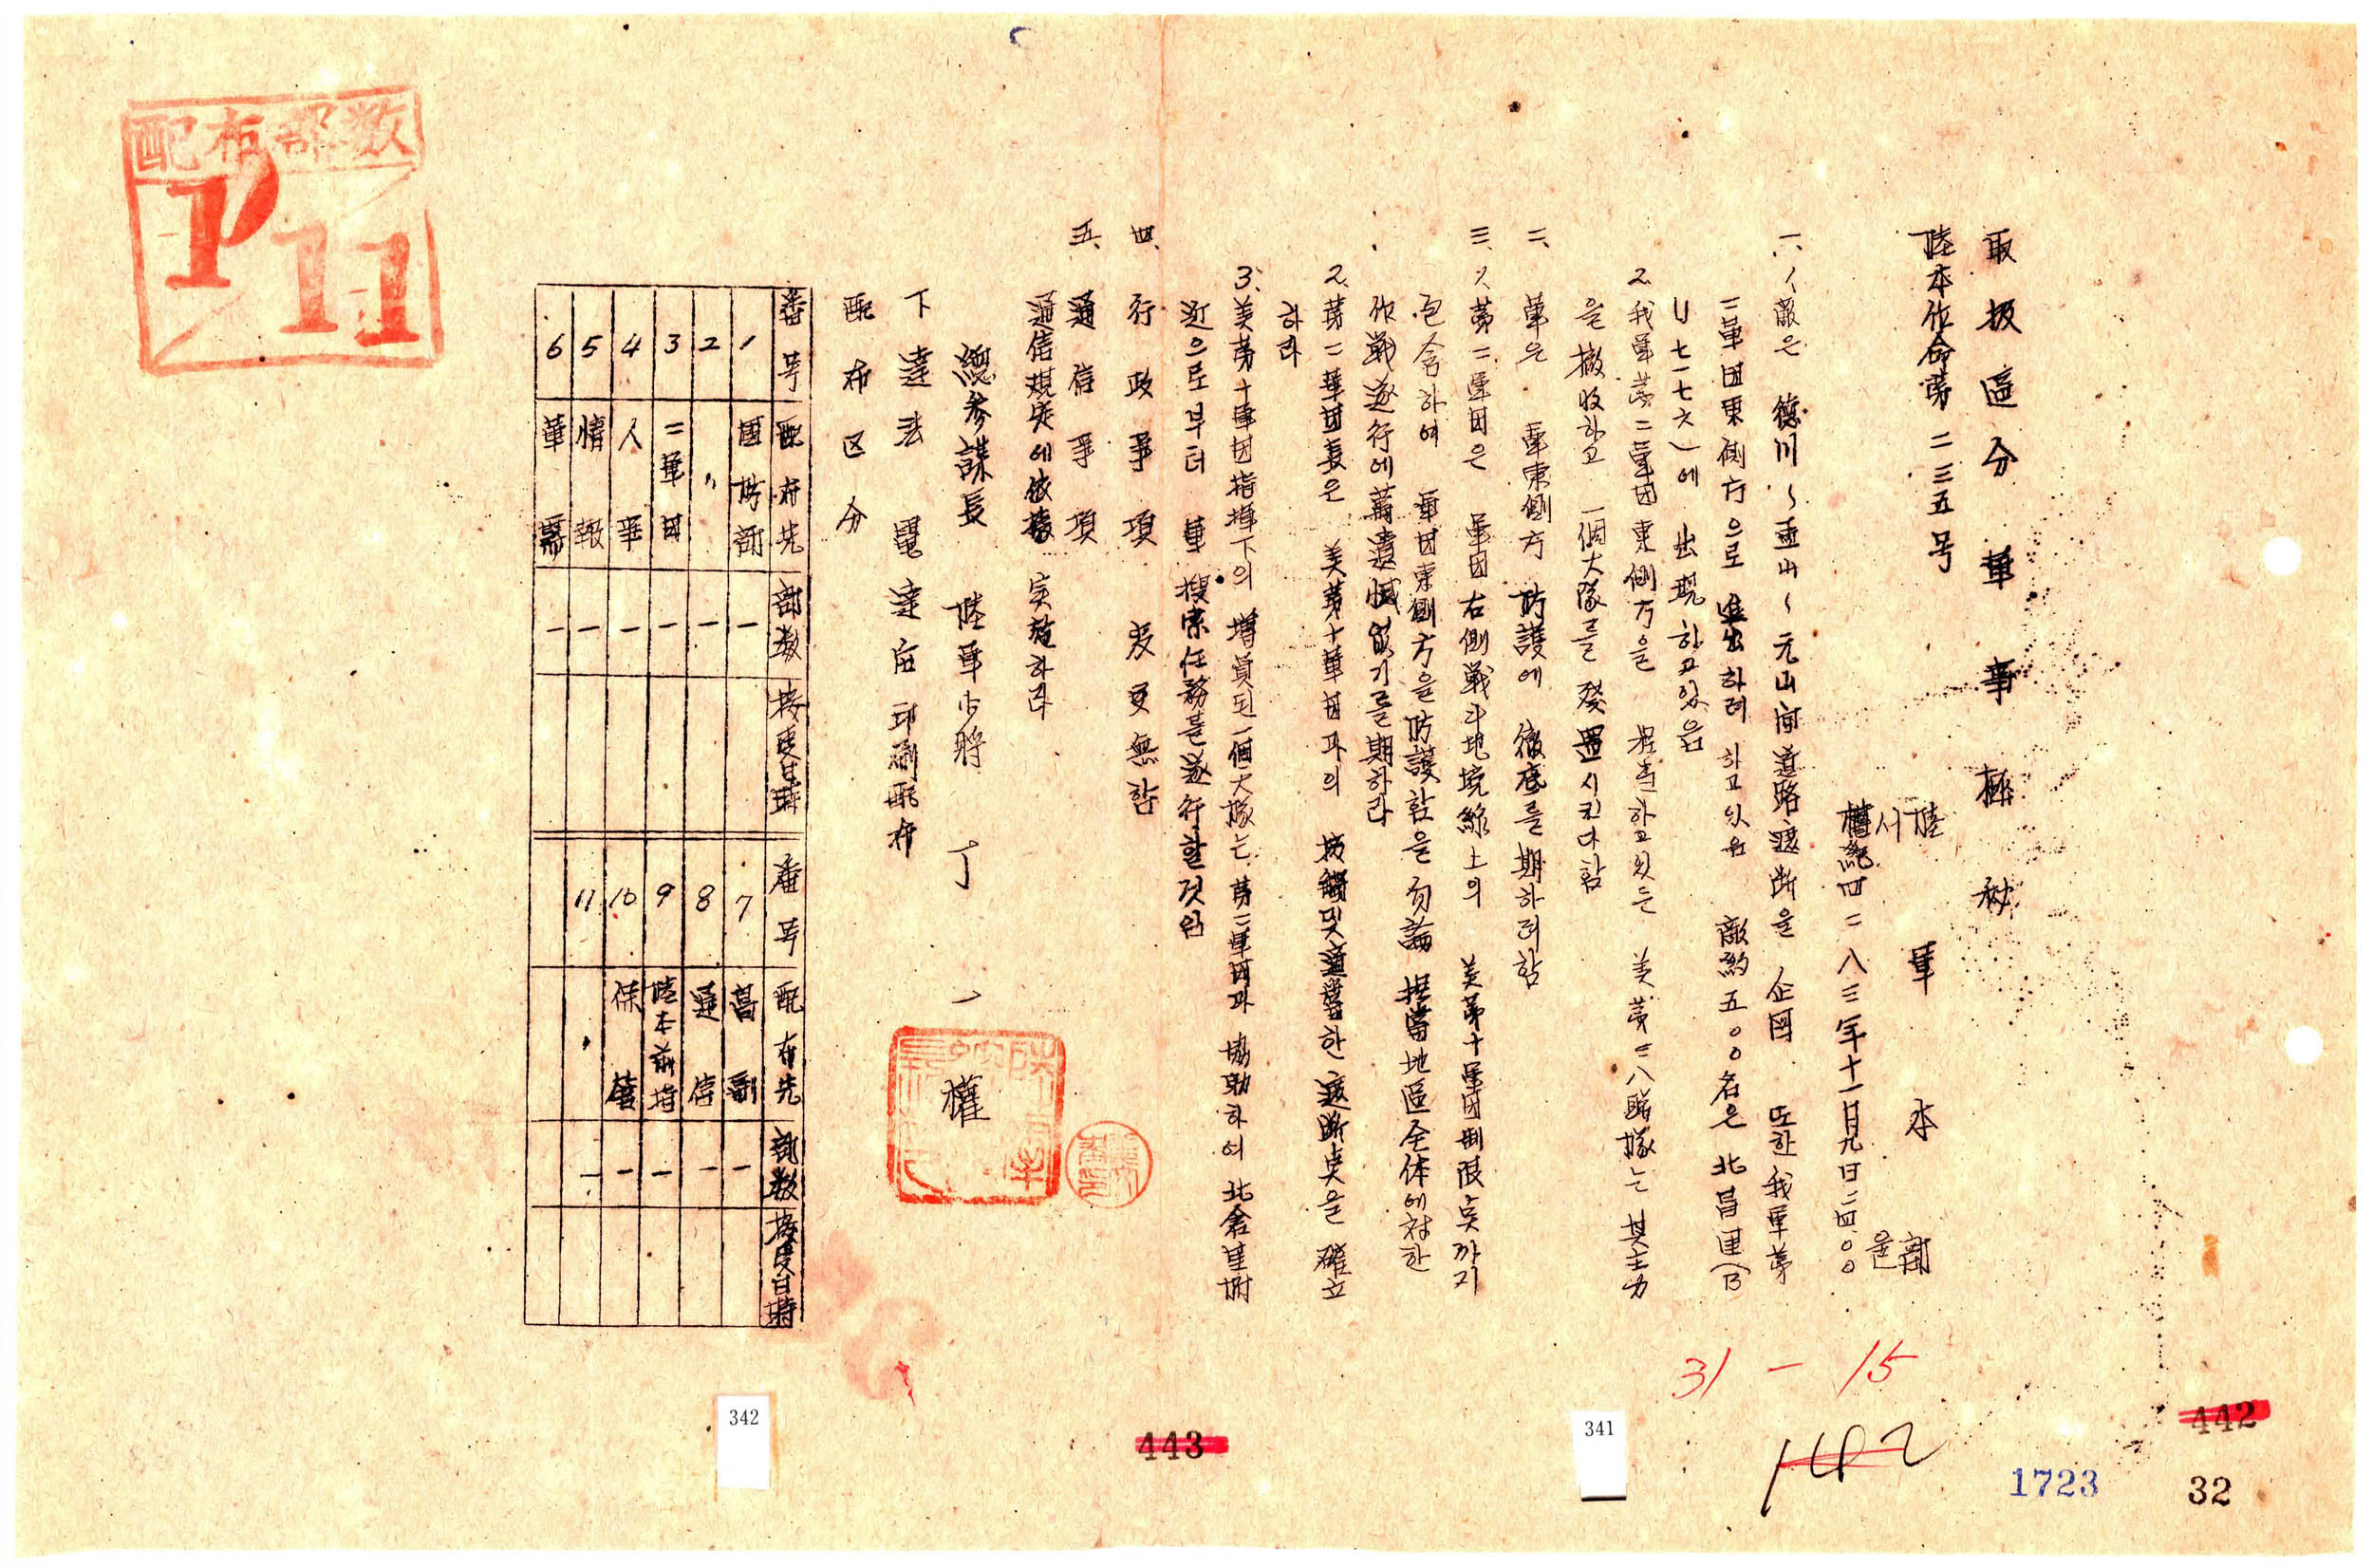 取扱區分 軍事極秘
陸本作命第二三五号
陸軍本部
서울
檀紀四二八三年十一月九日二四〇〇
一、1、敵은 德川~孟山~元山间道路遮断을 企図 또한 我軍第
二軍団東側方으로 進出하려 하고 있음 敵約五〇〇名은 北昌里(B
U七一七六)에 出現하고 있음
2、我軍第二軍団東側方을 担当하고 있는 美第三八聯隊는 其主力
을 撤收하고 一個大隊를 發置시킨다 함
二、軍은 軍東側方 防護에 徹底를 期하려 함
三、1、第二軍団은 軍団右側戰斗地境線上의 美第十軍団制限点까지
包含하여 軍団東側方을 防護함은 勿論 担當地區全体에 対한
作戰遂行에 萬遺憾없기를 期하라
2、第二軍団長은 美第十軍団과의 接觸 및 適當한 遮断点을 確立
하라
3、美第十軍団指揮下의 增員된 一個大隊는 第二軍団과 協助하여 北倉里附
近으로부터 軍搜索任務를 遂行할 것임
四、行政事項 变更無함
五、通信事項
通信規定에 依據 実施하라
總參謀長 陸軍少將 丁一權
下達法 電達后印刷配布
配布区分
番号 配布先 部数 接受日時 番号 配布先 部数 接受日時
1 國防部 一 7 高副 一
2 〃 一 8 通信 一
3 二軍団 一 9 陸本前指 一
4 人事 一 10 保 一
5 情報 一 11 一
6 軍需 一
配布部数
P 11
31-15
142
341
342
442
443
1723
32